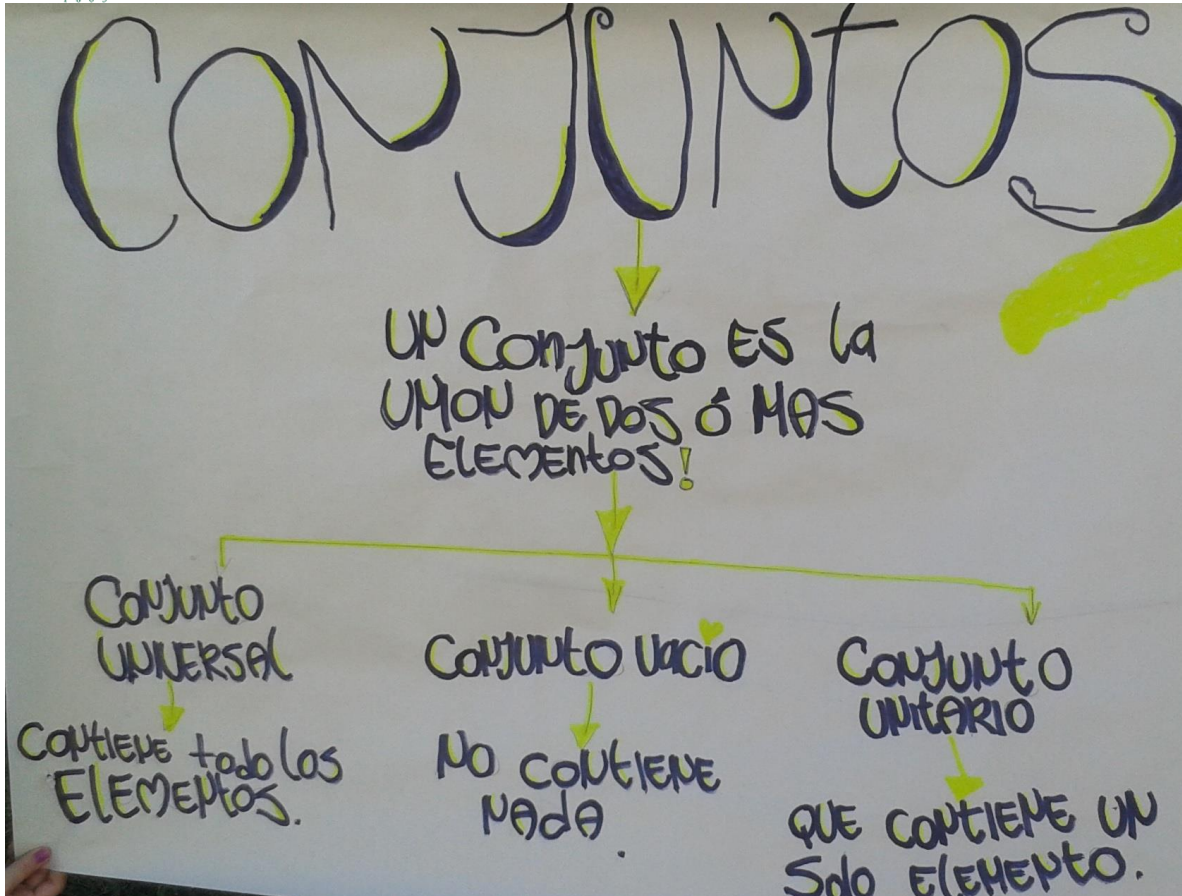 CONJUNTOS
UN CONJUNTO ES la
UNION DE DOS Ó MAS
ELEMENTOS!
CONJUNTO
UNIVERSAL
CONTIENE todo los
ELEMENTOS.
CONJUNTO VACIO
NO CONTIENE
NADA.
CONJUNTO
UNITARIO
QUE CONTIENE UN
Solo ELEMENTO.